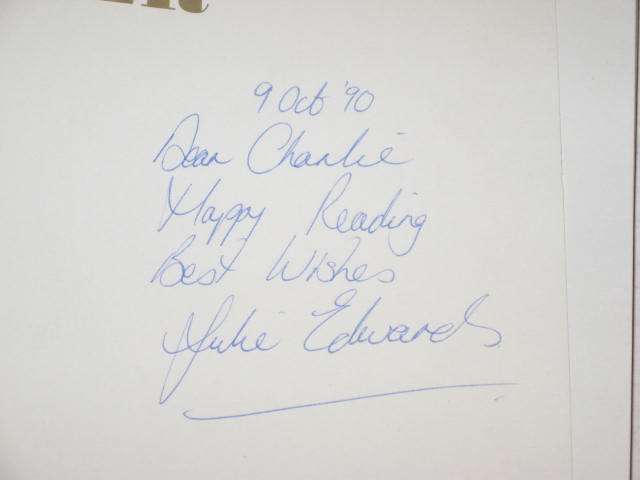 9 Oct '90
Dear Charlie
Happy Reading
Best Wishes
Julie Edwards